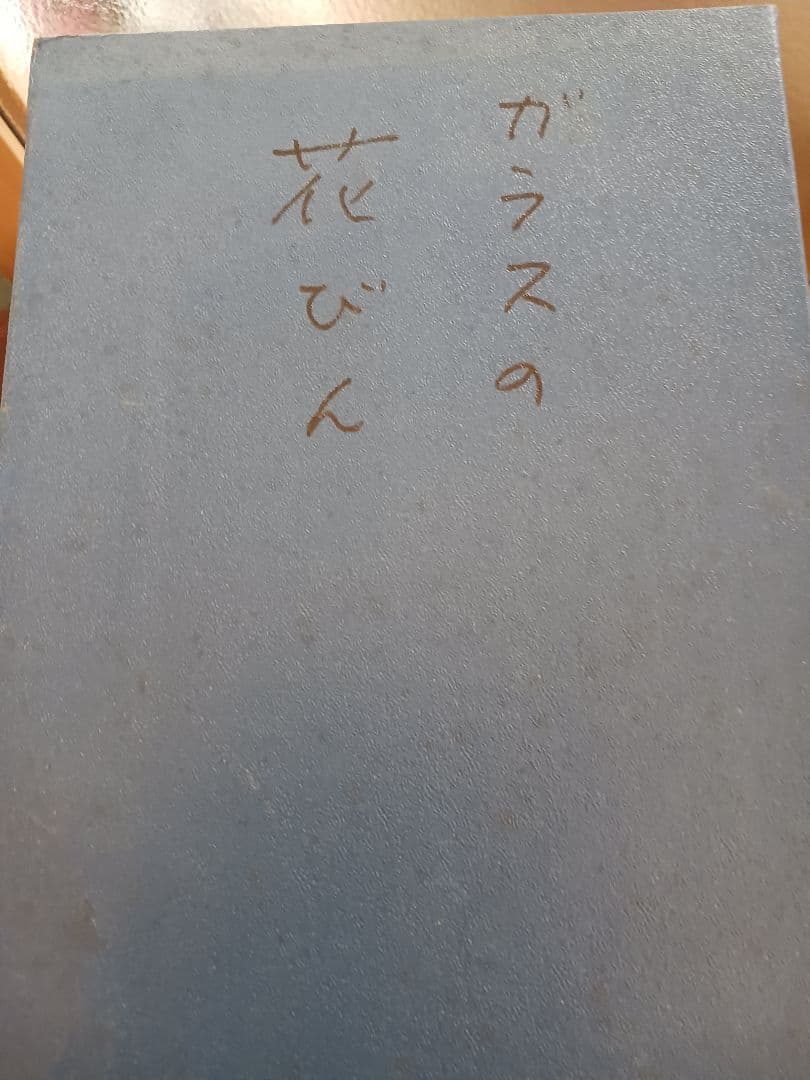 ガラスの
花びん